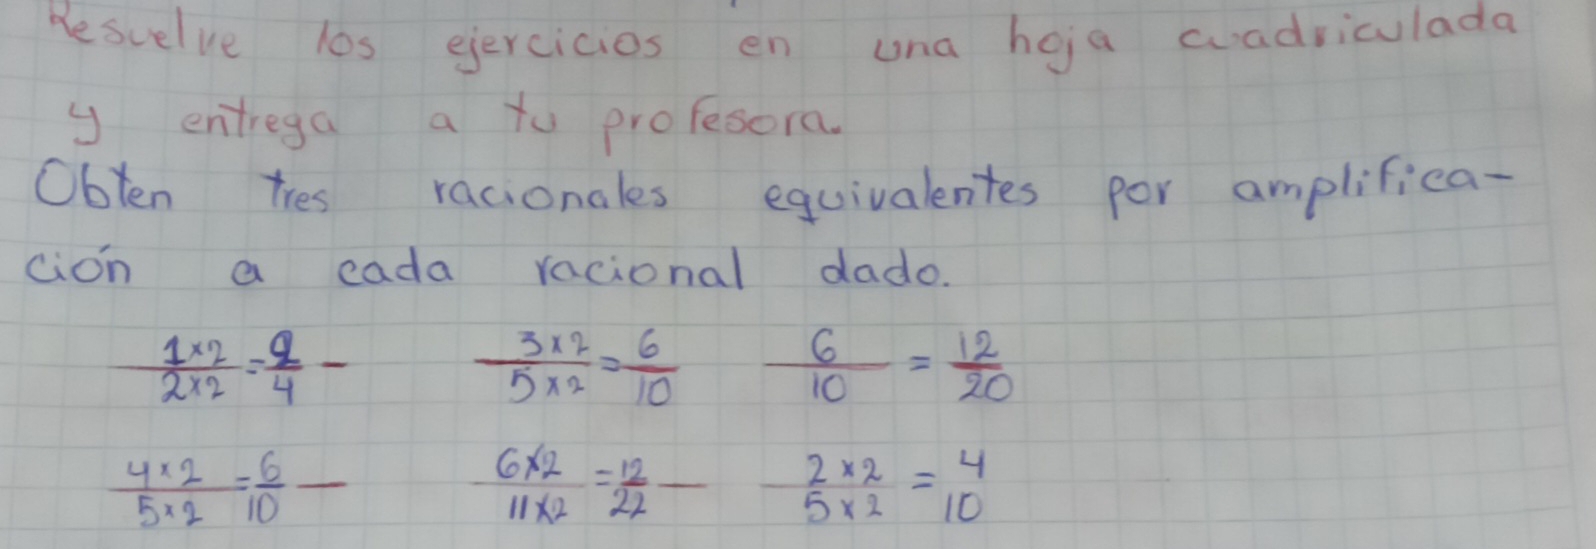 Resuelve los ejercicios en una hoja cuadriculada
y entrega a tu profesora.
Obten tres racionales equivalentes por amplifica-
ción a cada racional dado.
1×2/2×2 = 2/4 - 3×2/5×2 = 6/10 6/10 = 12/20
4×2/5×2 = 6/10 - 6×2/11×2 = 12/22 - 2×2/5×2 = 4/10